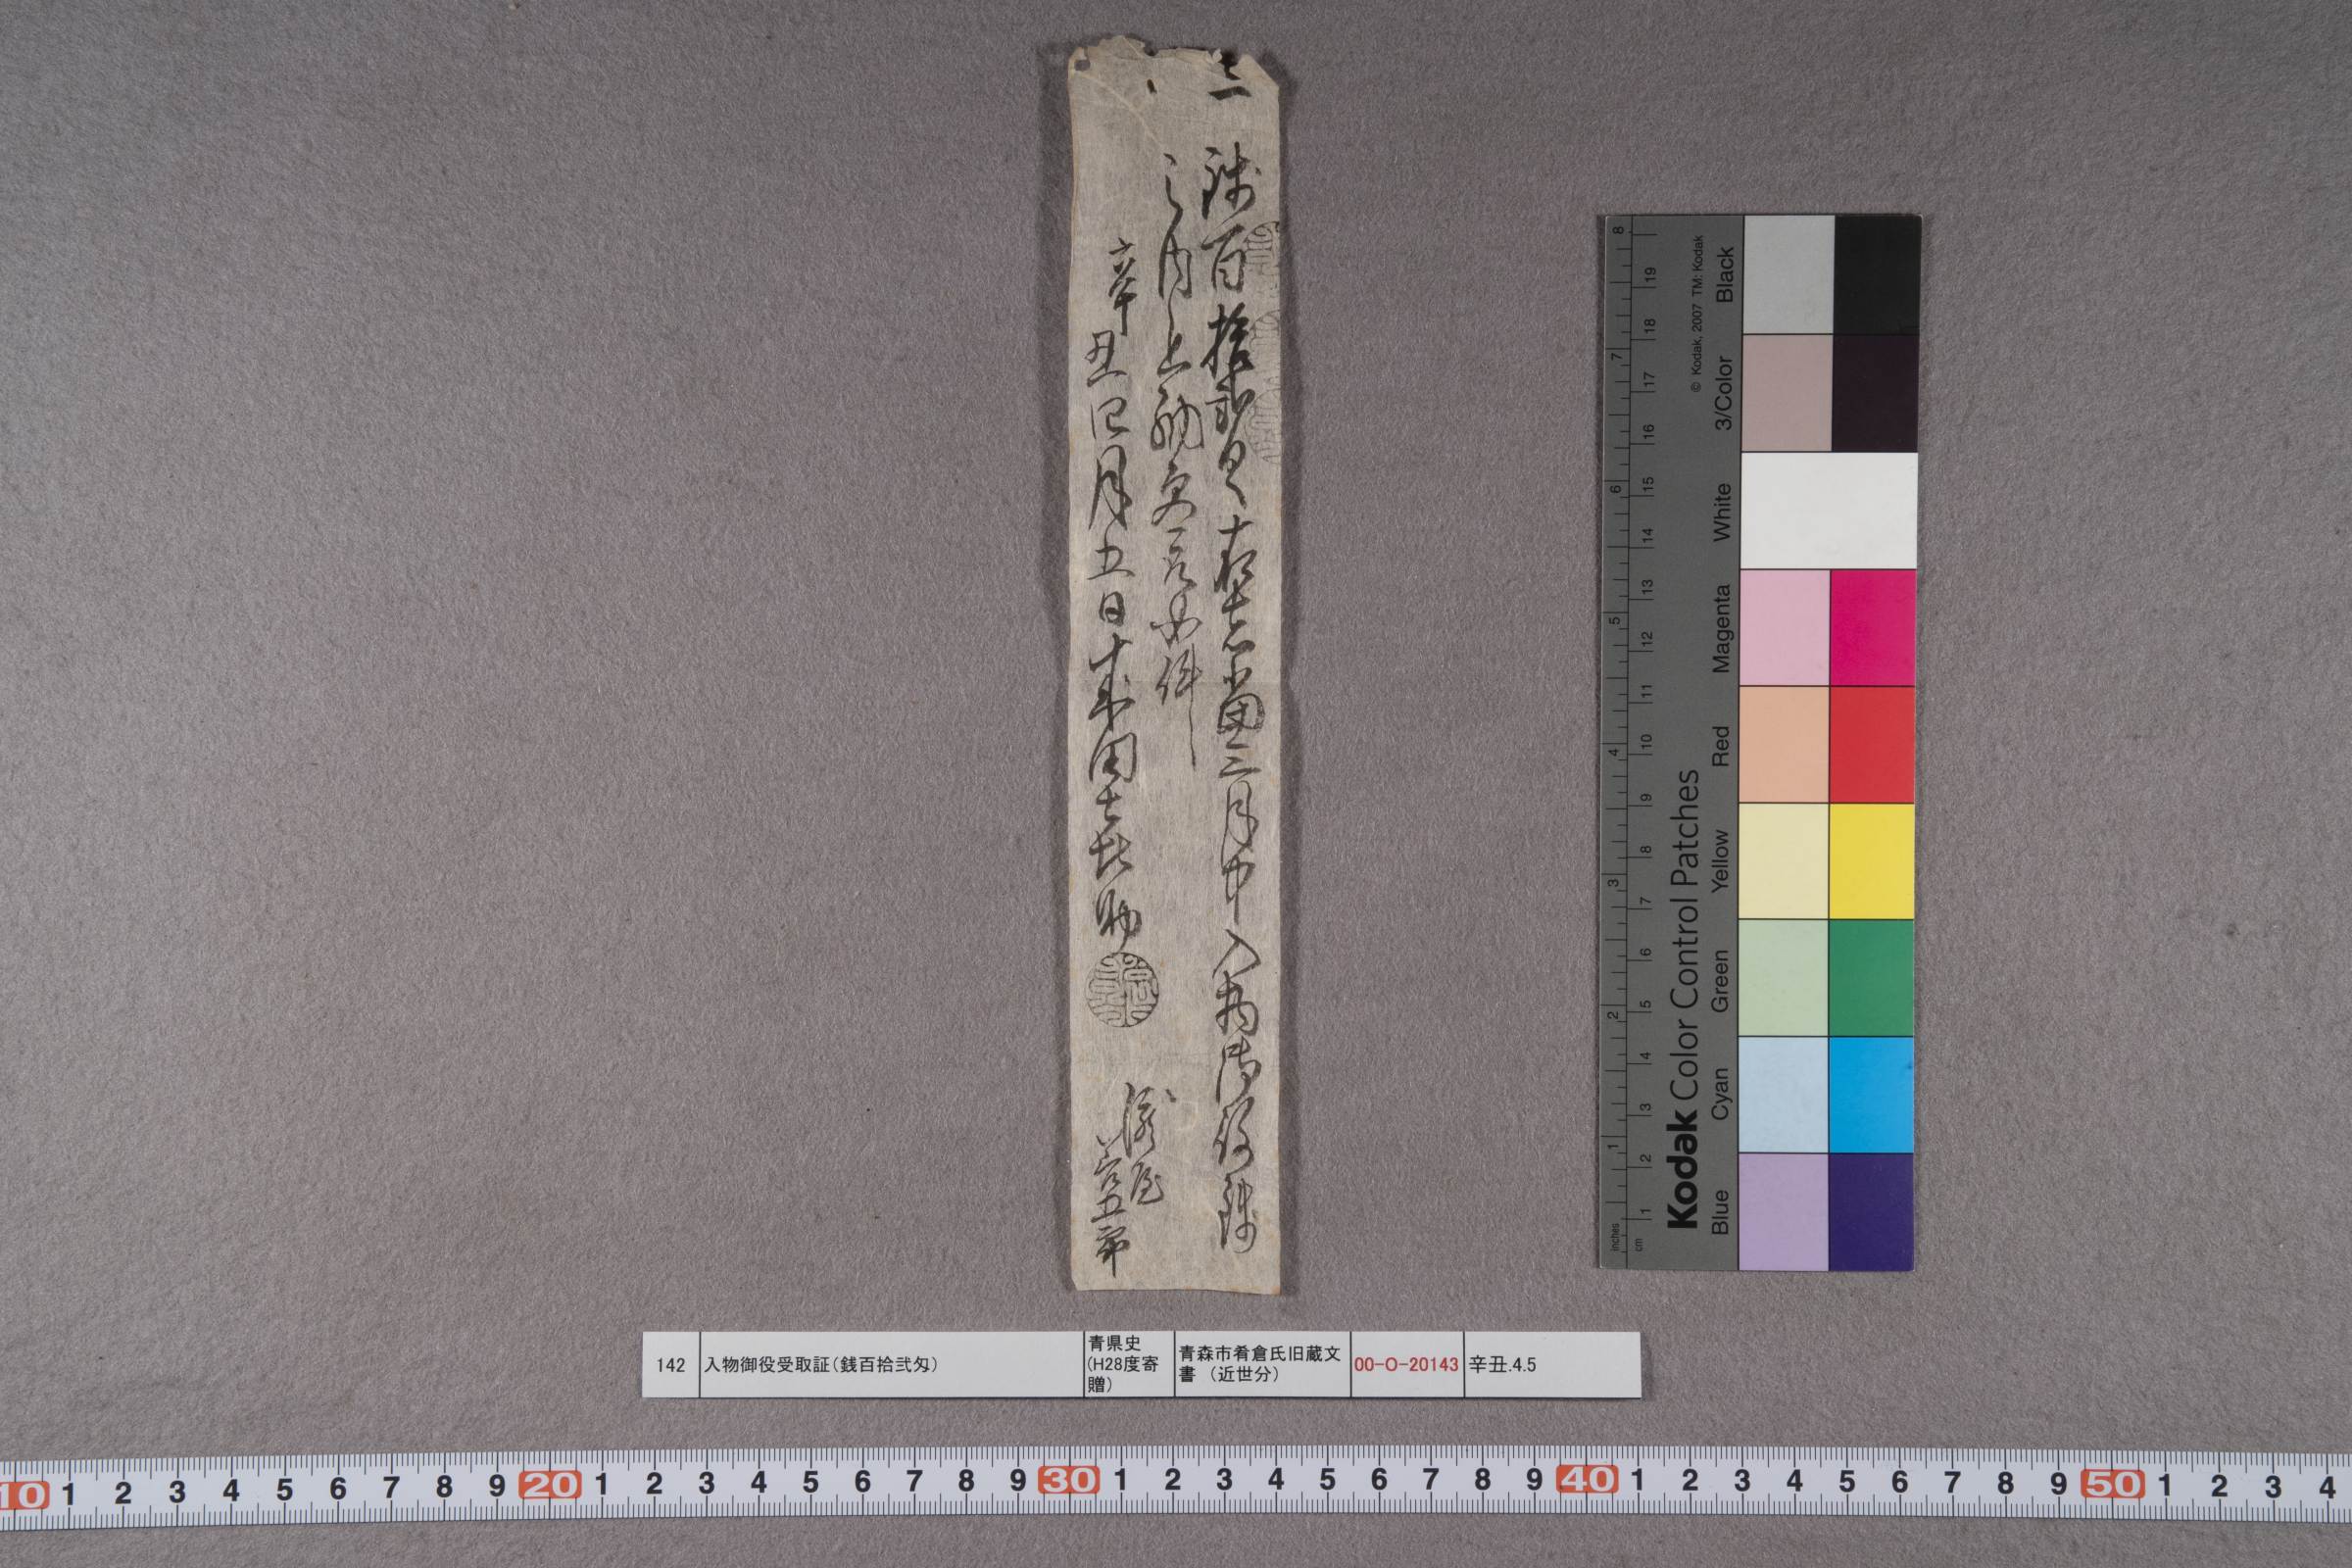 一 銭百拾弐匁 右者当三月中入物御役銭
之内上納受取如件
辛丑四月五日 田喜助
屋
五郎
142 入物御役受取証（銭百拾弐匁） 青県史（H28度寄贈） 青森市肴倉氏旧蔵文書（近世分） 00-O-20143 辛丑.4.5
Kodak Color Control Patches
© Kodak, 2007 TM: Kodak
Blue Cyan Green Yellow Red Magenta White 3/Color Black
inches 1 2 3 4 5 6 7 8
cm 1 2 3 4 5 6 7 8 9 10 11 12 13 14 15 16 17 18 19
10 1 2 3 4 5 6 7 8 9 20 1 2 3 4 5 6 7 8 9 30 1 2 3 4 5 6 7 8 9 40 1 2 3 4 5 6 7 8 9 50 1 2 3 4